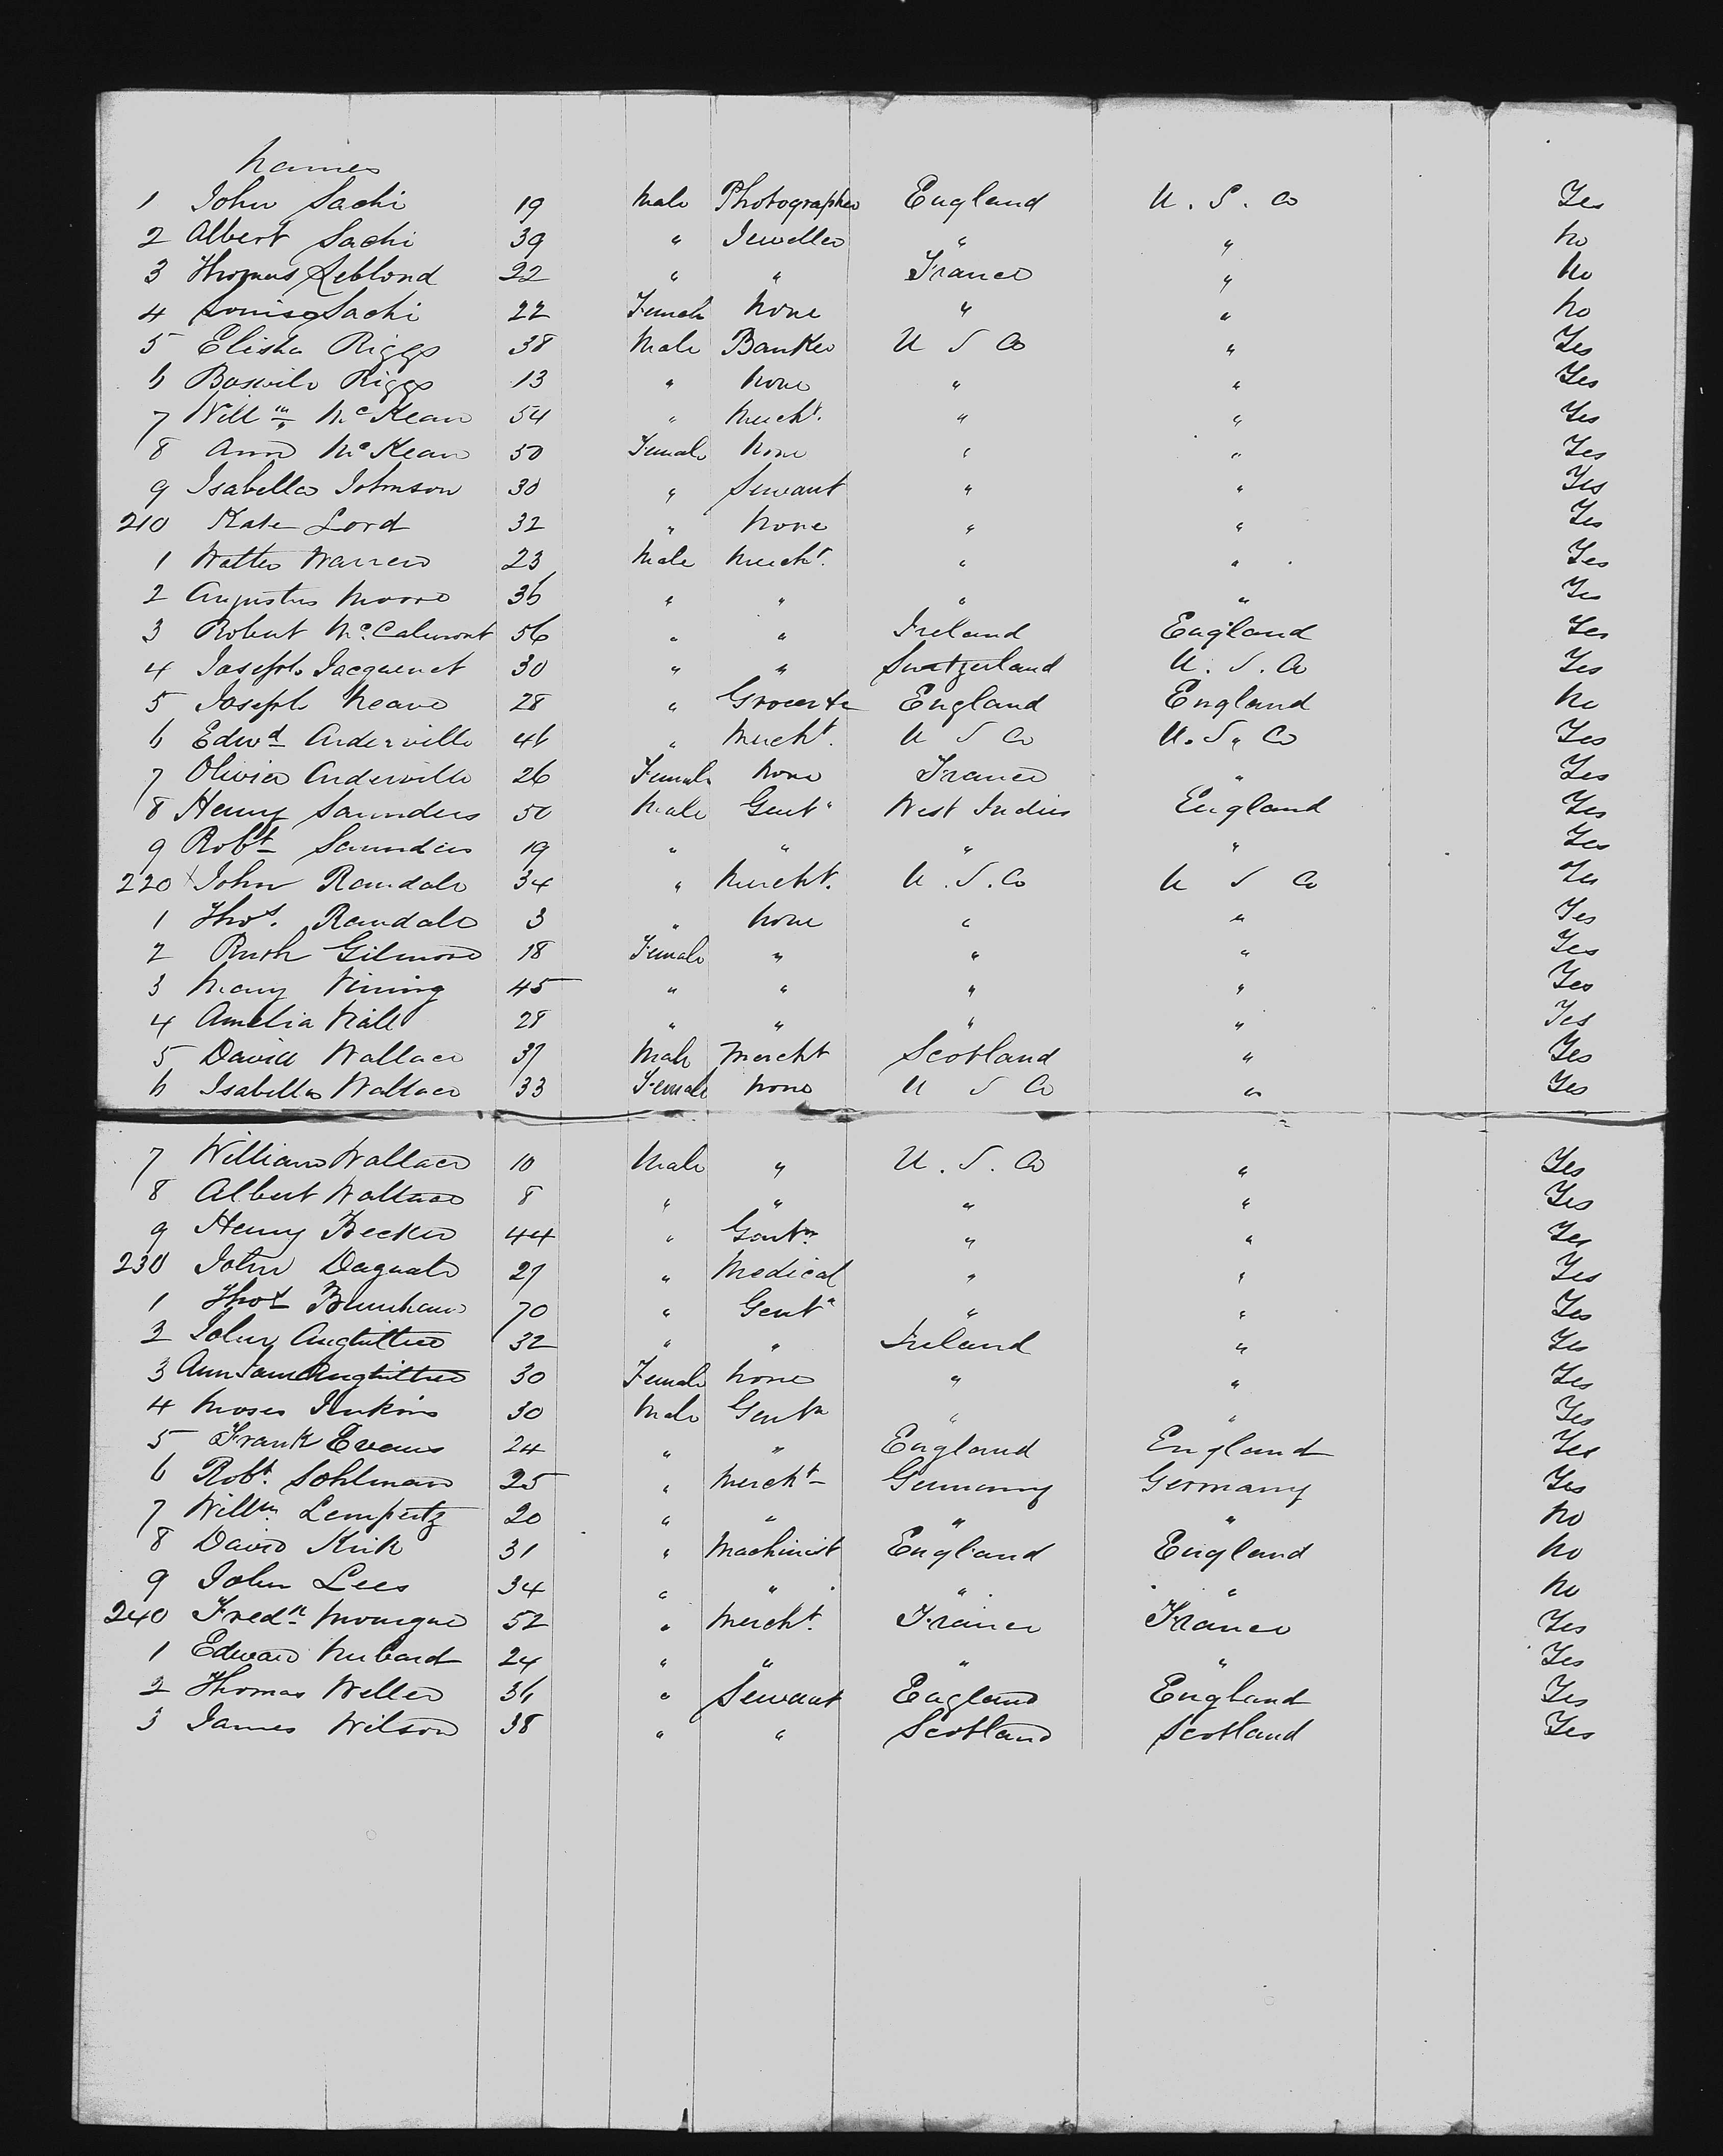 Names
1 John Sachi 19 Male Photographer England U. S. Co Yes
2 Albert Sachi 39 " Jeweller " " No
3 Thomas Leblond 22 " " France " No
4 Louisa Sachi 22 Female None " " No
5 Elisha Riggs 38 Male Banker U S Co " Yes
6 Riggs 13 " None " " Yes
7 Willm McKean 54 " Mercht. " " Yes
8 Ann McKean 50 Female None " " Yes
9 Isabella Johnson 30 " Servant " " Yes
210 Kate Lord 32 " None " " Yes
1 Walter Warren 23 Male Mercht. " " Yes
2 Augustus Moore 36 " " " " Yes
3 Robert McCalmont 56 " " Ireland England Yes
4 Joseph Jacquenet 30 " " Switzerland U. S. Co Yes
5 Joseph Neave 28 " Grocer &c England England No
6 Edwd Anderville 46 " Mercht. U S Co U. S. Co Yes
7 Olivia Anderville 26 Female None France " Yes
8 Henry Saunders 50 Male Gentn West Indies England Yes
9 Robt Saunders 19 " " " " Yes
220 John Randale 34 " Mercht. U. S. Co U S Co Yes
1 Thos. Randale 3 " None " " Yes
2 Ruth Gilmore 18 Female " " " Yes
3 Mary Vining 45 " " " " Yes
4 Amelia 28 " " " " Yes
5 David Wallace 37 Male Mercht Scotland " Yes
6 Isabella Wallace 33 Female None U S Co " Yes
7 William Wallace 10 Male " U. S. Co " Yes
8 Albert Wallace 8 " " " " Yes
9 Henry Becker 44 " Gentn " " Yes
230 John 27 " Medical " " Yes
1 Thos 70 " Gentn " " Yes
2 John 32 " " Ireland " Yes
3 Ann Jane 30 Female None " " Yes
4 Moses Jenkins 30 Male Gentn " " Yes
5 Frank Evans 24 " " England England Yes
6 Robt. Sohlman 25 " Mercht Germany Germany Yes
7 Willm Lempertz 20 " " " " No
8 David Kirk 31 " Machinist England England No
9 John Lees 34 " " " " No
240 Fredk Mourgue 52 " Mercht. France France Yes
1 Edward 24 " " " " Yes
2 Thomas Weller 36 " Servant England England Yes
3 James Wilson 38 " " Scotland Scotland Yes